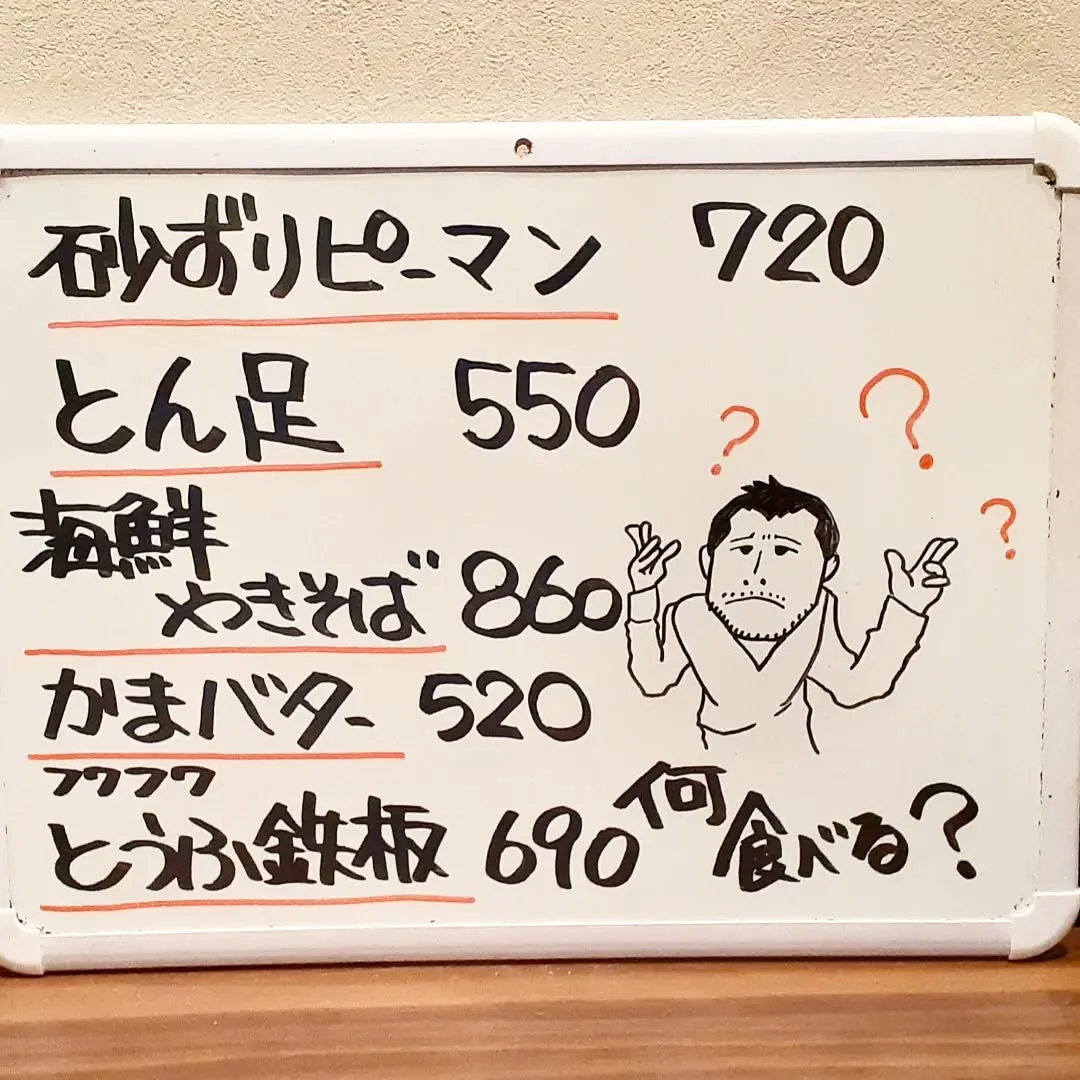 砂ずりピーマン 720
とん足 550
? ? ?
海鮮
やきそば 860
かまバター 520
フワフワ
とうふ鉄板 690
何
食べる?